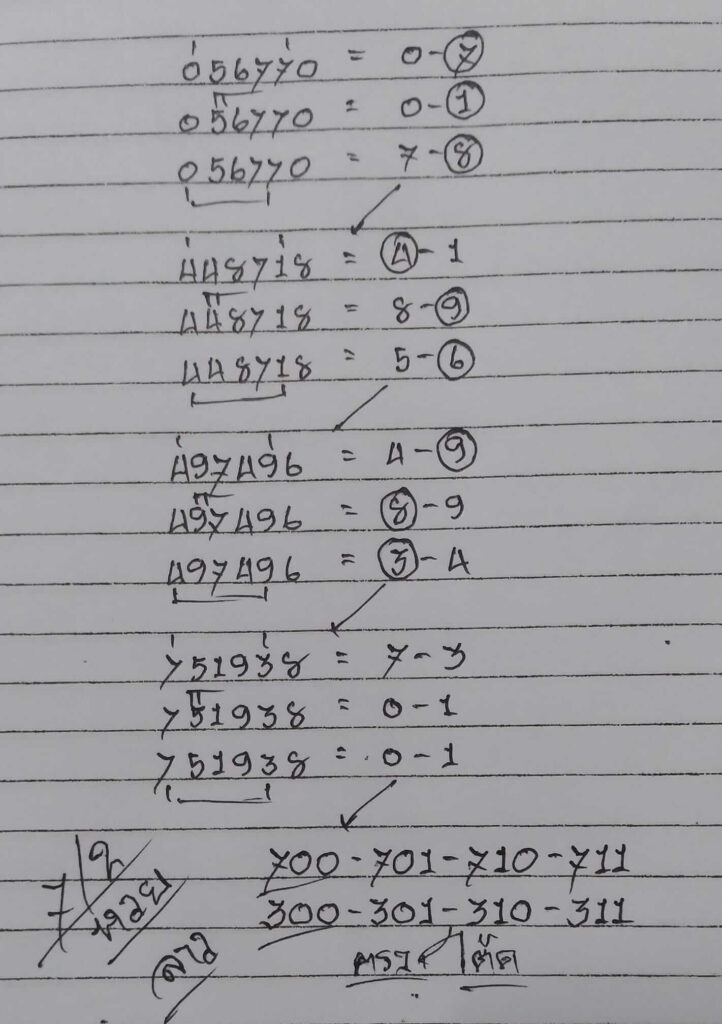 056770 = 0-7
056770 = 0-1
056770 = 7-8
448718 = 4-1
448718 = 8-9
448718 = 5-6
497496 = 4-9
497496 = 8-9
497496 = 3-4
751938 = 7-3
751938 = 0-1
751938 = 0-1
700-701-710-711
300-301-310-311
7
หวย
ลาว
ตรง/โต๊ด